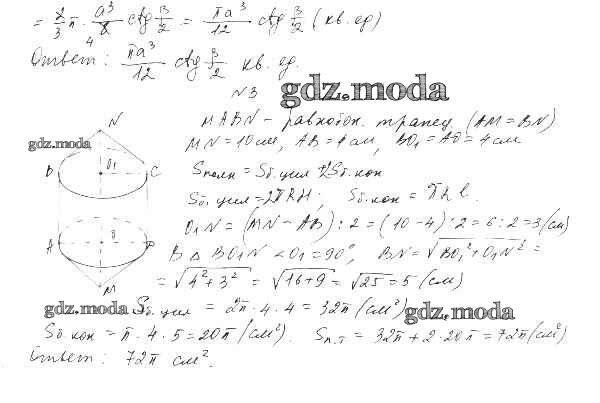 = 2/3 π · a³/8 ctg β/2 = πa³/12 ctg β/2 (кв. ед)
Ответ: πa³/12 ctg β/2 кв. ед.
N3
gdz.moda
MABN - равнобок. трапец. (AM = BN)
MN = 10 см, AB = 4 см, BO₁ = AO = 4 см
gdz.moda
Sполн = Sб. цил + 2Sб. кон
Sб. цил = 2πRH; Sб. кон = πRl.
O₁N = (MN - AB) : 2 = (10 - 4) : 2 = 6 : 2 = 3 (см)
В Δ BO₁N <O₁ = 90°, BN = √BO₁² + O₁N² =
= √4² + 3² = √16 + 9 = √25 = 5 (см)
gdz.moda Sб. цил = 2π · 4 · 4 = 32π (см²) gdz.moda
Sб. кон = π · 4 · 5 = 20π (см²). Sп.т = 32π + 2 · 20π = 72π (см²)
Ответ: 72π см².
N
B O₁ C
A O D
M